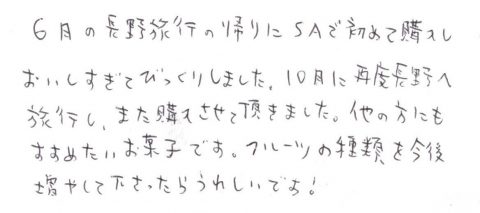 6月の長野旅行の帰りにSAで初めて購入し
おいしすぎてびっくりしました。10月に再度長野へ
旅行し、また購入させて頂きました。他の方にも
すすめたいお菓子です。フルーツの種類を今後
増やして下さったらうれしいです!